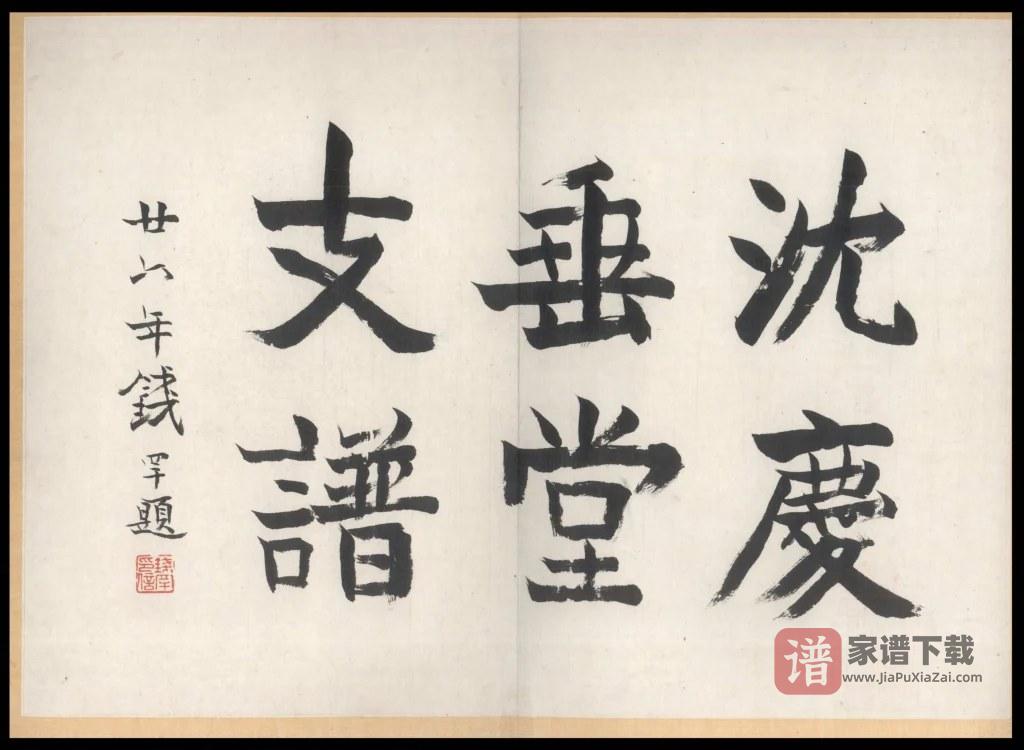 沈慶
垂堂
支譜
廿六年錢罕題
錢罕印信
谱
家谱下载
www.JiaPuXiaZai.com